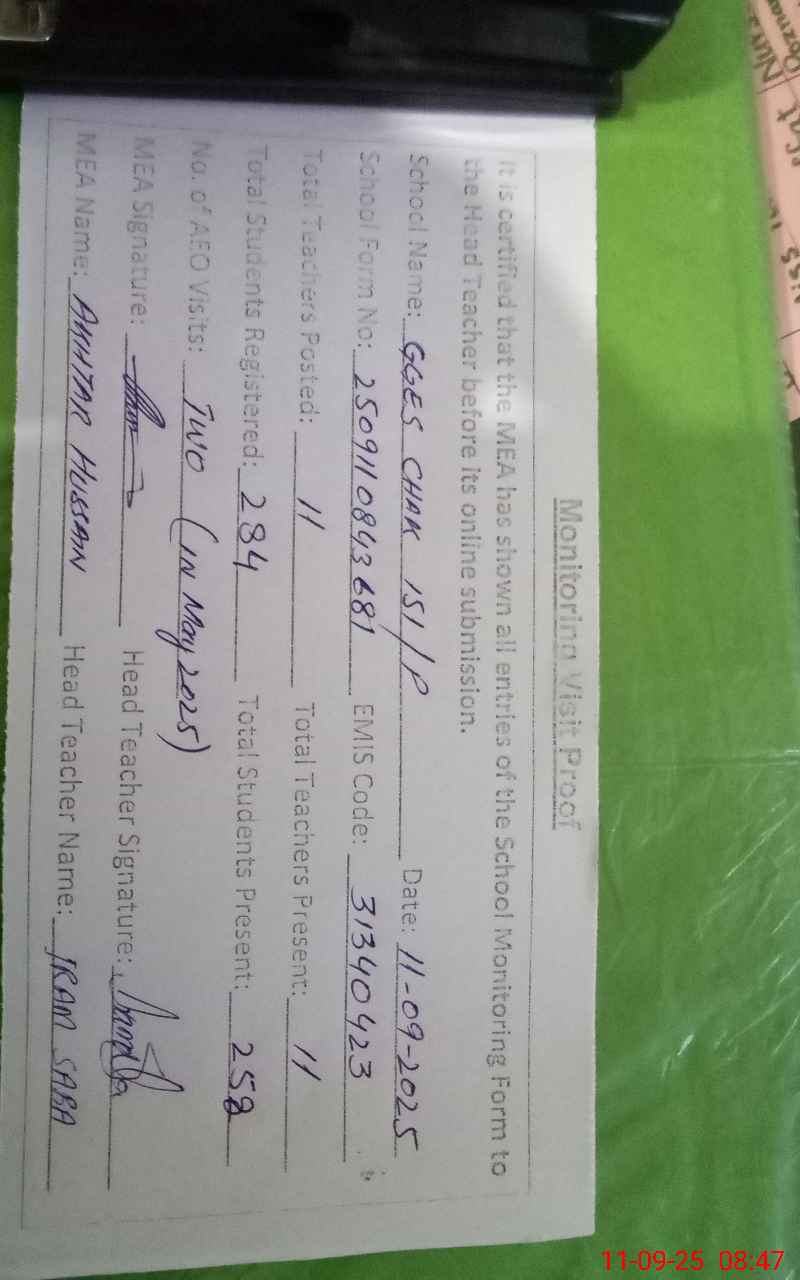 Monitoring Visit Proof
It is certified that the MEA has shown all entries of the School Monitoring Form to
the Head Teacher before its online submission.
School Name: GGES CHAK 151/P Date: 11-09-2025
School Form No: 2509110843681 EMIS Code: 31340423
Total Teachers Posted: 11 Total Teachers Present: 11
Total Students Registered: 284 Total Students Present: 258
No. of AEO Visits: TWO (IN May 2025)
MEA Signature: Head Teacher Signature:
MEA Name: AKHTAR HUSSAIN Head Teacher Name: IRAM SABA
11-09-25 08:47